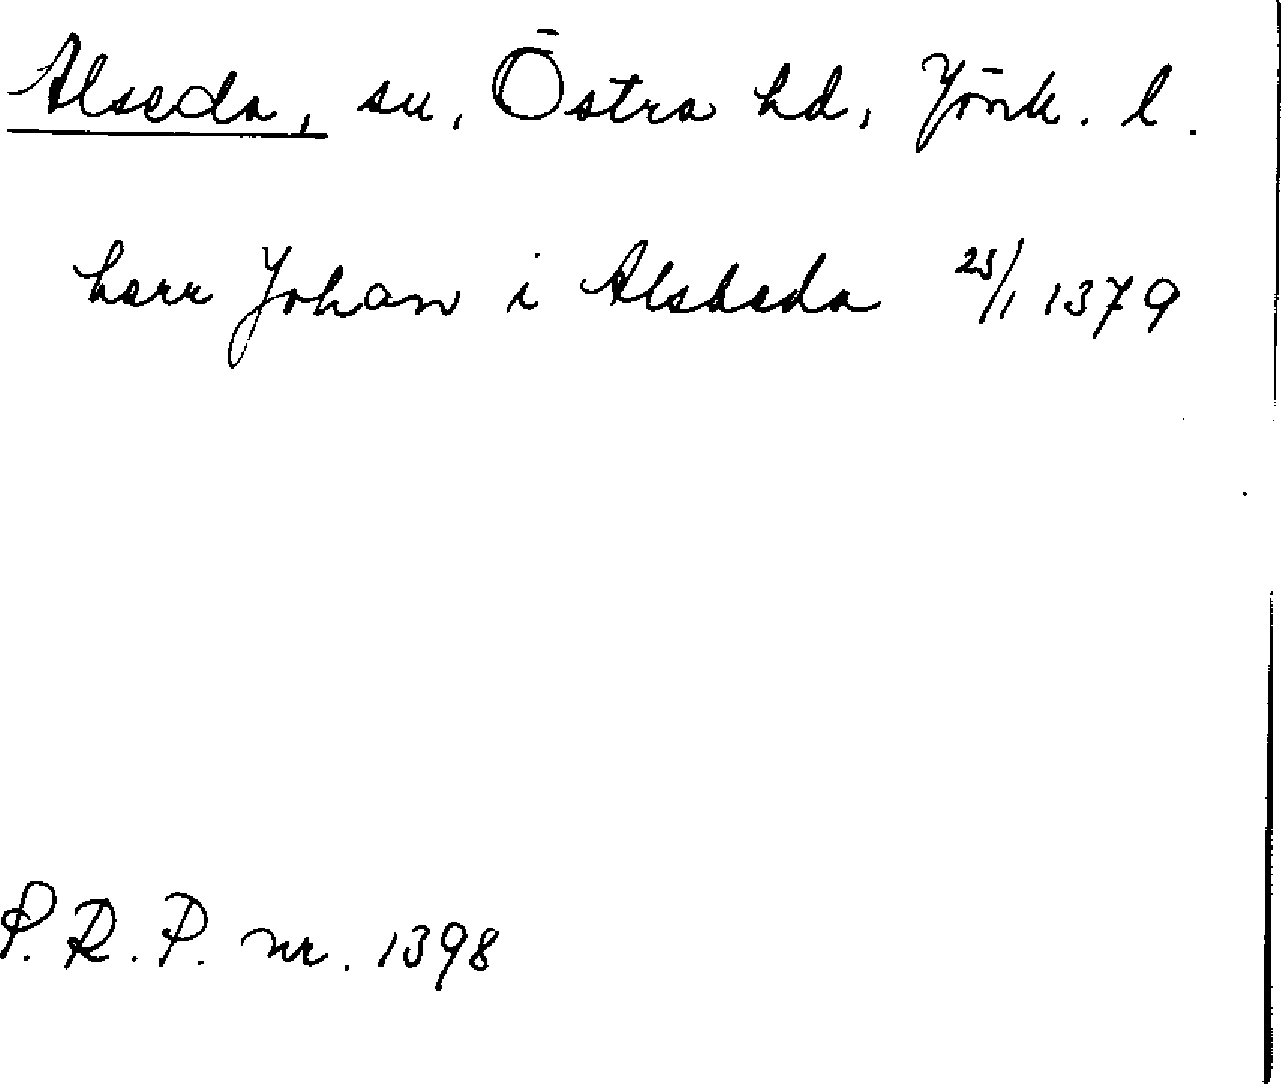 Alseda, sn, Östra hd, Jönk. l.
herr Johan i Alsheda 23/1 1379
P. R. P. nr. 1398